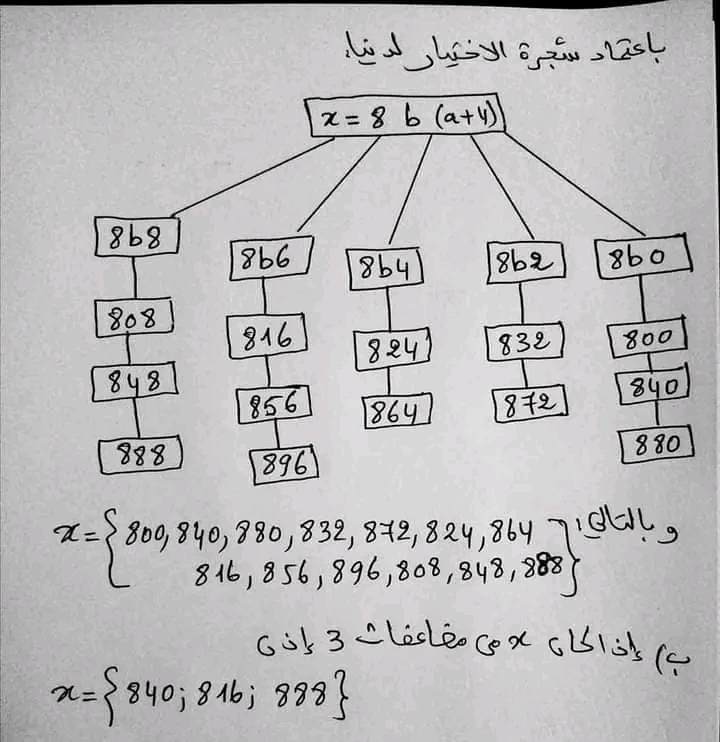 باعتماد شجرة الاختيار لدينا،
x = 8 b (a+4)
8b8 8b6 8b4 8b2 8b0
808 816 824 832 800
848 856 864 872 840
888 896 880
وبالتالي:
x = { 800, 840, 880, 832, 872, 824, 864
816, 856, 896, 808, 848, 888 }
ب) إذا كان x من مضاعفات 3 إذن
x = { 840; 816; 888 }